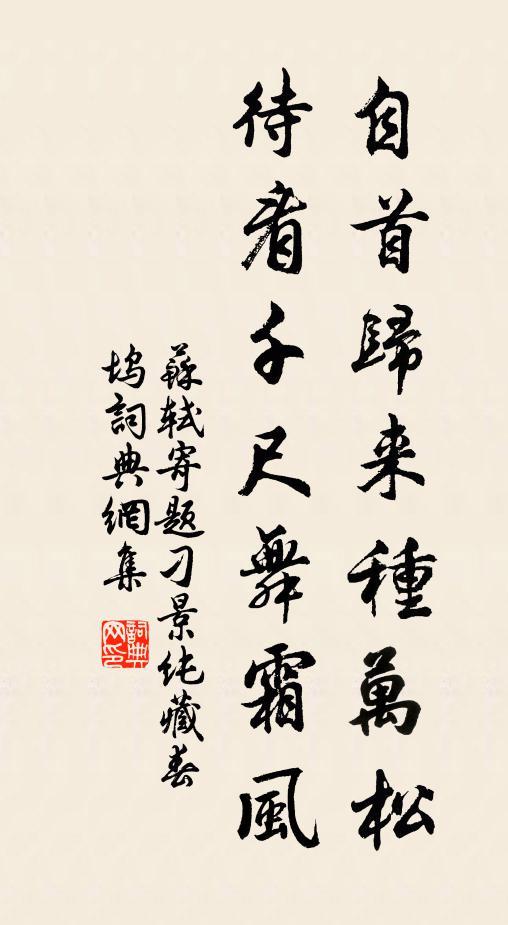 自首歸来種萬松
待看千尺舞霜風
蘇軾寄題刁景纯藏春
塢詞典網集
詞典
网印